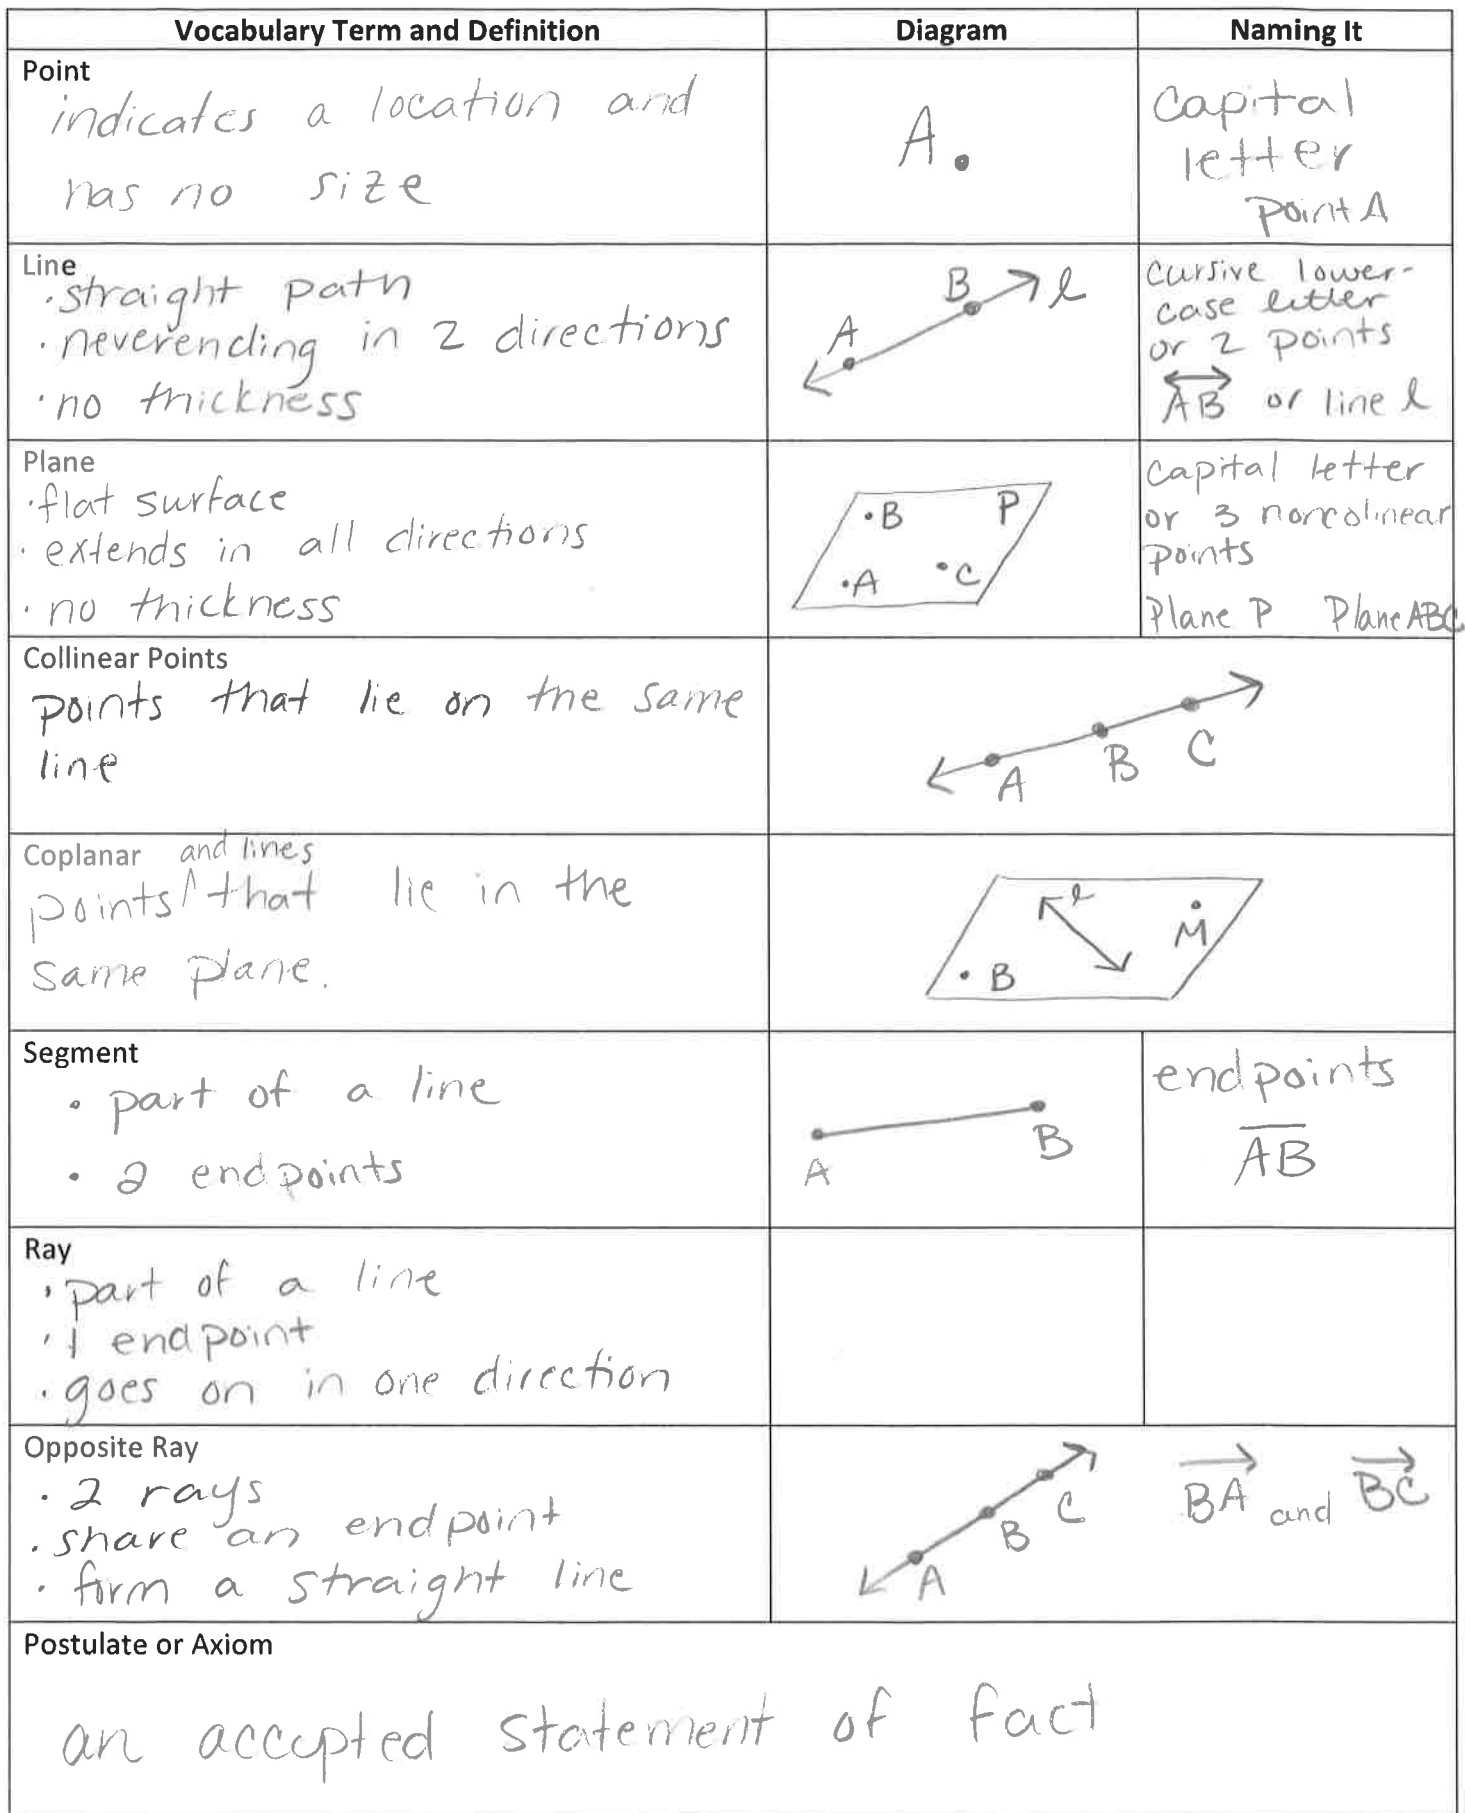 Vocabulary Term and Definition
Diagram
Naming It
Point
indicates a location and
has no size
A
capital
letter
point A
Line
• straight path
• neverending in 2 directions
• no thickness
A
B
l
cursive lower-
case letter
or 2 points
AB or line l
Plane
• flat surface
• extends in all directions
• no thickness
B
P
A
C
capital letter
or 3 noncolinear
points
Plane P Plane ABC
Collinear Points
points that lie on the same
line
A
B
C
Coplanar
and lines
points ^ that lie in the
same plane.
l
M
B
Segment
• part of a line
• 2 endpoints
A
B
endpoints
AB
Ray
• part of a line
• 1 endpoint
• goes on in one direction
Opposite Ray
• 2 rays
• share an endpoint
• form a straight line
A
B
C
BA and BC
Postulate or Axiom
an accepted statement of fact